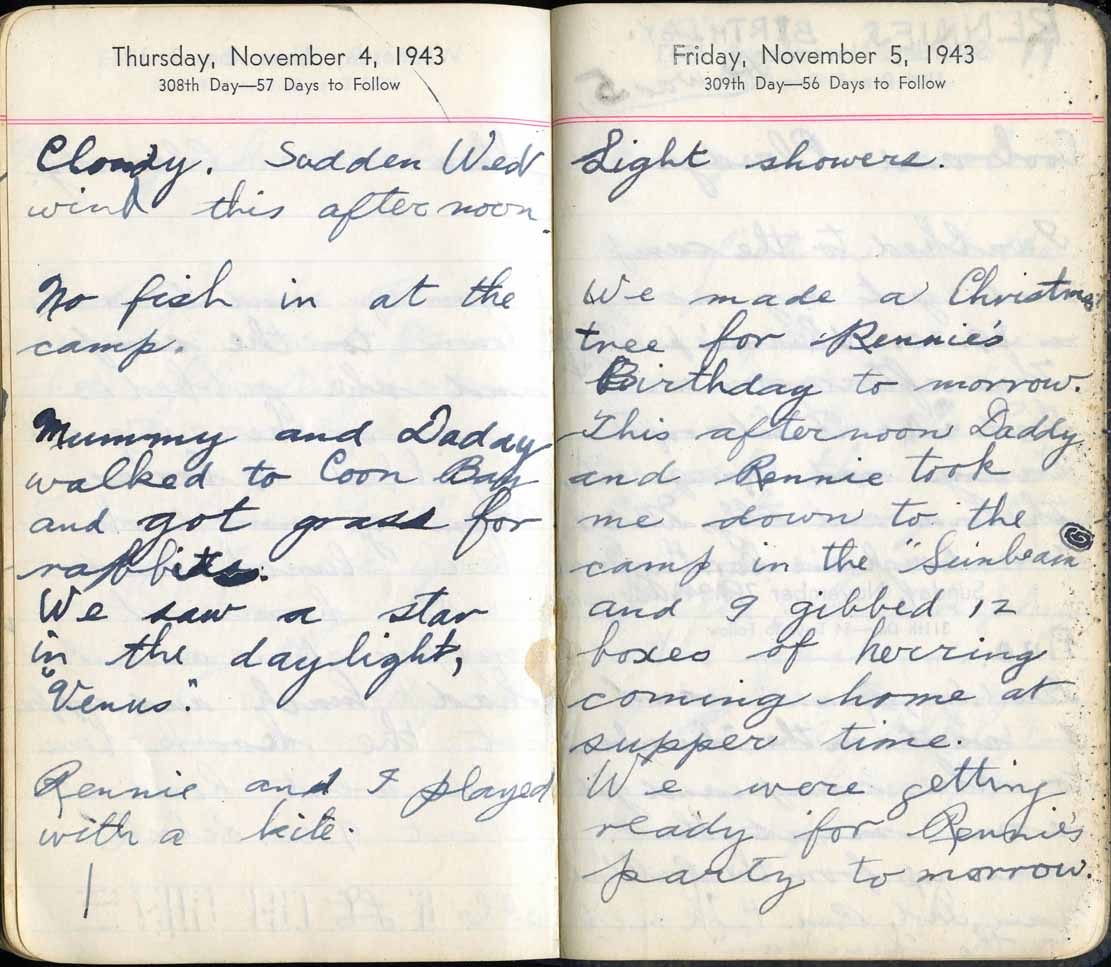 Thursday, November 4, 1943
308th Day—57 Days to Follow
Cloudy. Sudden West
wind this afternoon.
No fish in at the
camp.
Mummy and Daddy
walked to Coon Bay
and got grass for
rabbits.
We saw a star
in the daylight,
"Venus."
Rennie and I played
with a kite.
Friday, November 5, 1943
309th Day—56 Days to Follow
Light showers.
We made a Christmas
tree for Rennie's
Birthday to morrow.
This afternoon Daddy
and Rennie took
me down to the
camp in the "Sunbeam"
and I gibbed 12
boxes of herring
coming home at
supper time.
We were getting
ready for Rennie's
party to morrow.